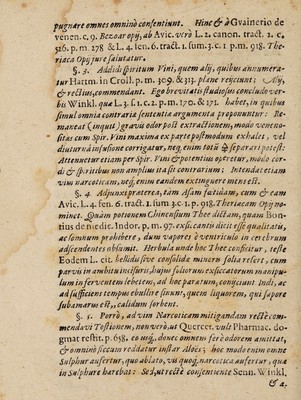 pugnare omnes omninò consentiunt. Hinc & à Gvainerio de
venen. c. 9. Bezoar opij, ab Avic. verò L. 2. canon. tract. 1. c.
516. p. m. 178 & L. 4. fen. 6. tract. 1. sum. 3. c. 1. p. m. 918. The-
riaca Opij jure salutatur.
§. 3. Addidi spiritum Vini, quem alij, quibus annumera-
tur Hartm. in Croll. p. m. 309. & 313. plane rejiciunt; Alij,
& rectius, commendant. Ego brevitatis studiosus concludo ver-
bis Winkl. qua L. 3. s. 1. c. 2. p. m. 170. & 171. habet, in quibus
simul omnia contraria sententia argumenta proponuntur: Re-
maneat (inquit) gravis odor post extractionem, modo veneno-
sitas cum Spir. Vini maxima ex parte postmodum exhalet, vel
diuturnâ infusione corrigatur, neq; enim totū ꝙ separari potest:
Attenuetur etiam per Spir. Vini & potentius opéretur, modo cor-
di & spiritibus non amplius ita sit contrarium: Intendat etiam
vim narcoticam, neq; enim eandem extinguere mens est.
§. 4. Adjunxi præterea, tùm Asam fœtidam, cum & eam
Avic. L. 4. fen. 6. tract. 1. sum 3. c. 1. p. 918. Theriacam Opij no-
minet. Quàm potionem Chinensium Thee dictam, quam Bon-
tius de medic. Indor. p. m. 97. exsiccantis dicit esse qualitatis,
ac somnum prohibere, dum vapores è ventriculo in cerebrum
adscendentes oblimit. Herbula unde hoc Thee conficitur, teste
Eodem L. cit. bellidisive consolidæ minori folia refert, cum
parvis in ambitu incisuris, hujus foliorum exsiccatorum manipu-
lum in ferventem lebetem, ad hoc paratum, conjiciunt Indi, ac
ad sufficiens tempus ebullire sinunt, quem liquorem, qui sapore
subamarus est, calidum sorbent.
§. 5. Porrò, ad vim Narcoticam mitigandam rectè com-
mendavi Tostionem, non verò, ut Quercet. vult Pharmac. dog-
mat restit. p. 638, eo usq;, donec omnem ferè odorem amittat,
& omninò siccum reddatur instar Aloës; hoc modo enim omne
Sulphur aufertur, quo ablato, vis quoq; narcotica aufertur, quæ
in Sulphure hærebat: Sed, ut rectè consentiente Senn. Winkl.
& a.